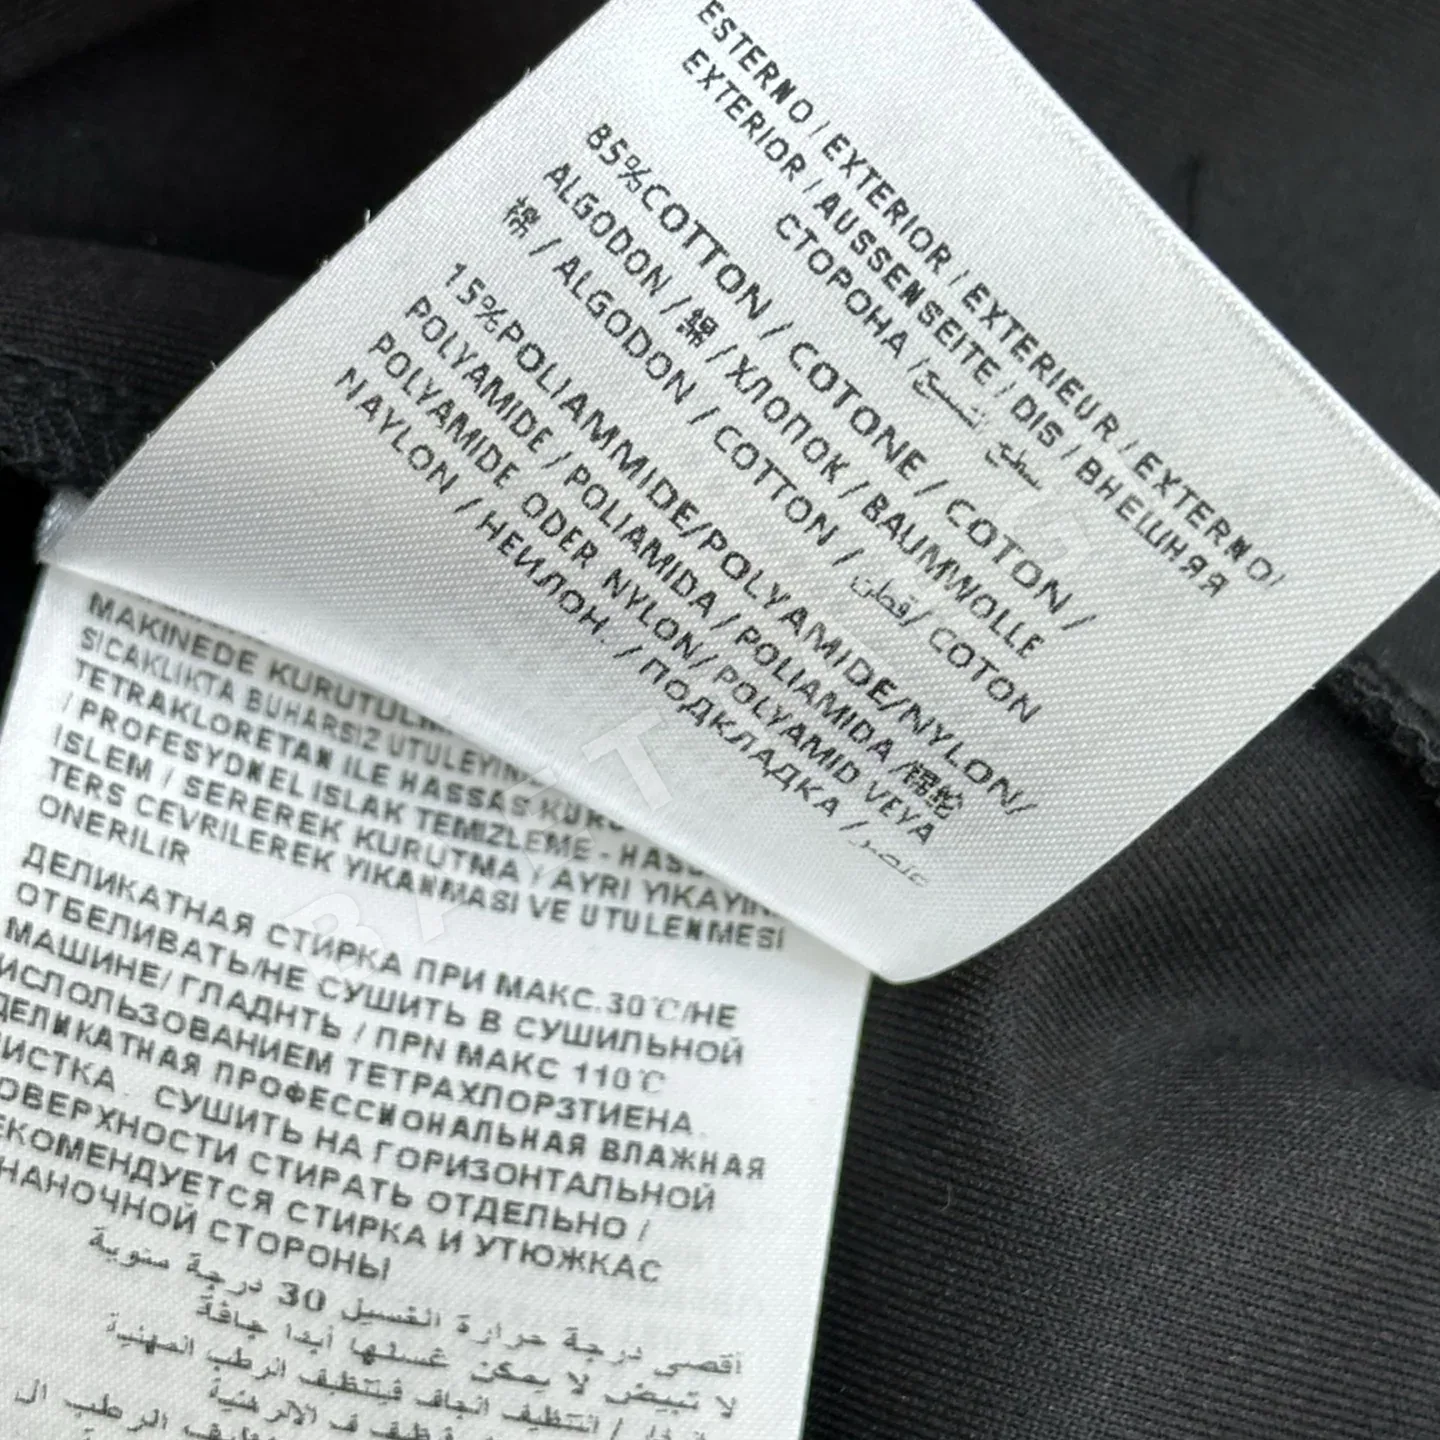 ESTERNO / EXTERIOR / EXTERIEUR / EXTERNO/
EXTERIOR / AUSSENSEITE / DIS / ВНЕШНЯЯ
СТОРОНА / سطح
85%COTTON / COTONE / COTON /
ALGODON / 綿 / ХЛОПОК / BAUMWOLLE
棉 / ALGODON / COTTON / قطن / COTON
15%POLIAMMIDE/POLYAMIDE/NYLON/
POLYAMIDE / POLIAMIDA / POLIAMIDA /
POLYAMIDE ODER NYLON/ POLYAMID VEYA
NAYLON / НЕИЛОН. / ПОДКЛАДКА /
MAKINEDE KURUTULM
SICAKLIKTA BUHARSIZ UTULEYIN
TETRAKLORETAN ILE HASSAS KURU
/ PROFESYDNEL ISLAK TEMIZLEME - HASS
ISLEM / SEREREK KURUTMA / AYRI YIKAYIN
TERS CEVRILEREK YIKANMASI VE UTULENMESI
ONERILIR
ДЕЛИКАТНАЯ СТИРКА ПРИ МАКС.30℃/НЕ
ОТБЕЛИВАТЬ/НЕ СУШИТЬ В СУШИЛЬНОЙ
МАШИНЕ/ ГЛАДНТЬ / ПРN МАКС 110℃
ИСЛОЛЬЗОВАНИЕМ ТЕТРАХЛОРЗТИЕНА.
ДЕЛИКАТНАЯ ПРОФЕССИОНАЛЬНАЯ ВЛАЖНАЯ
ИСТКА СУШИТЬ НА ГОРИЗОНТАЛЬНОЙ
ОВЕРХНОСТИ СТИРАТЬ ОТДЕЛЬНО /
ЕКОМЕНДУЕТСЯ СТИРКА И УТЮЖКАС
НАНОЧНОЙ СТОРОНЫ
أقصى درجة حرارة الغسيل 30 درجة مئوية
لا تبيض لا يمكن غسلها أبدا جافة
التنظيف الجاف فيتنظيف الرطب المهنية
BAFT